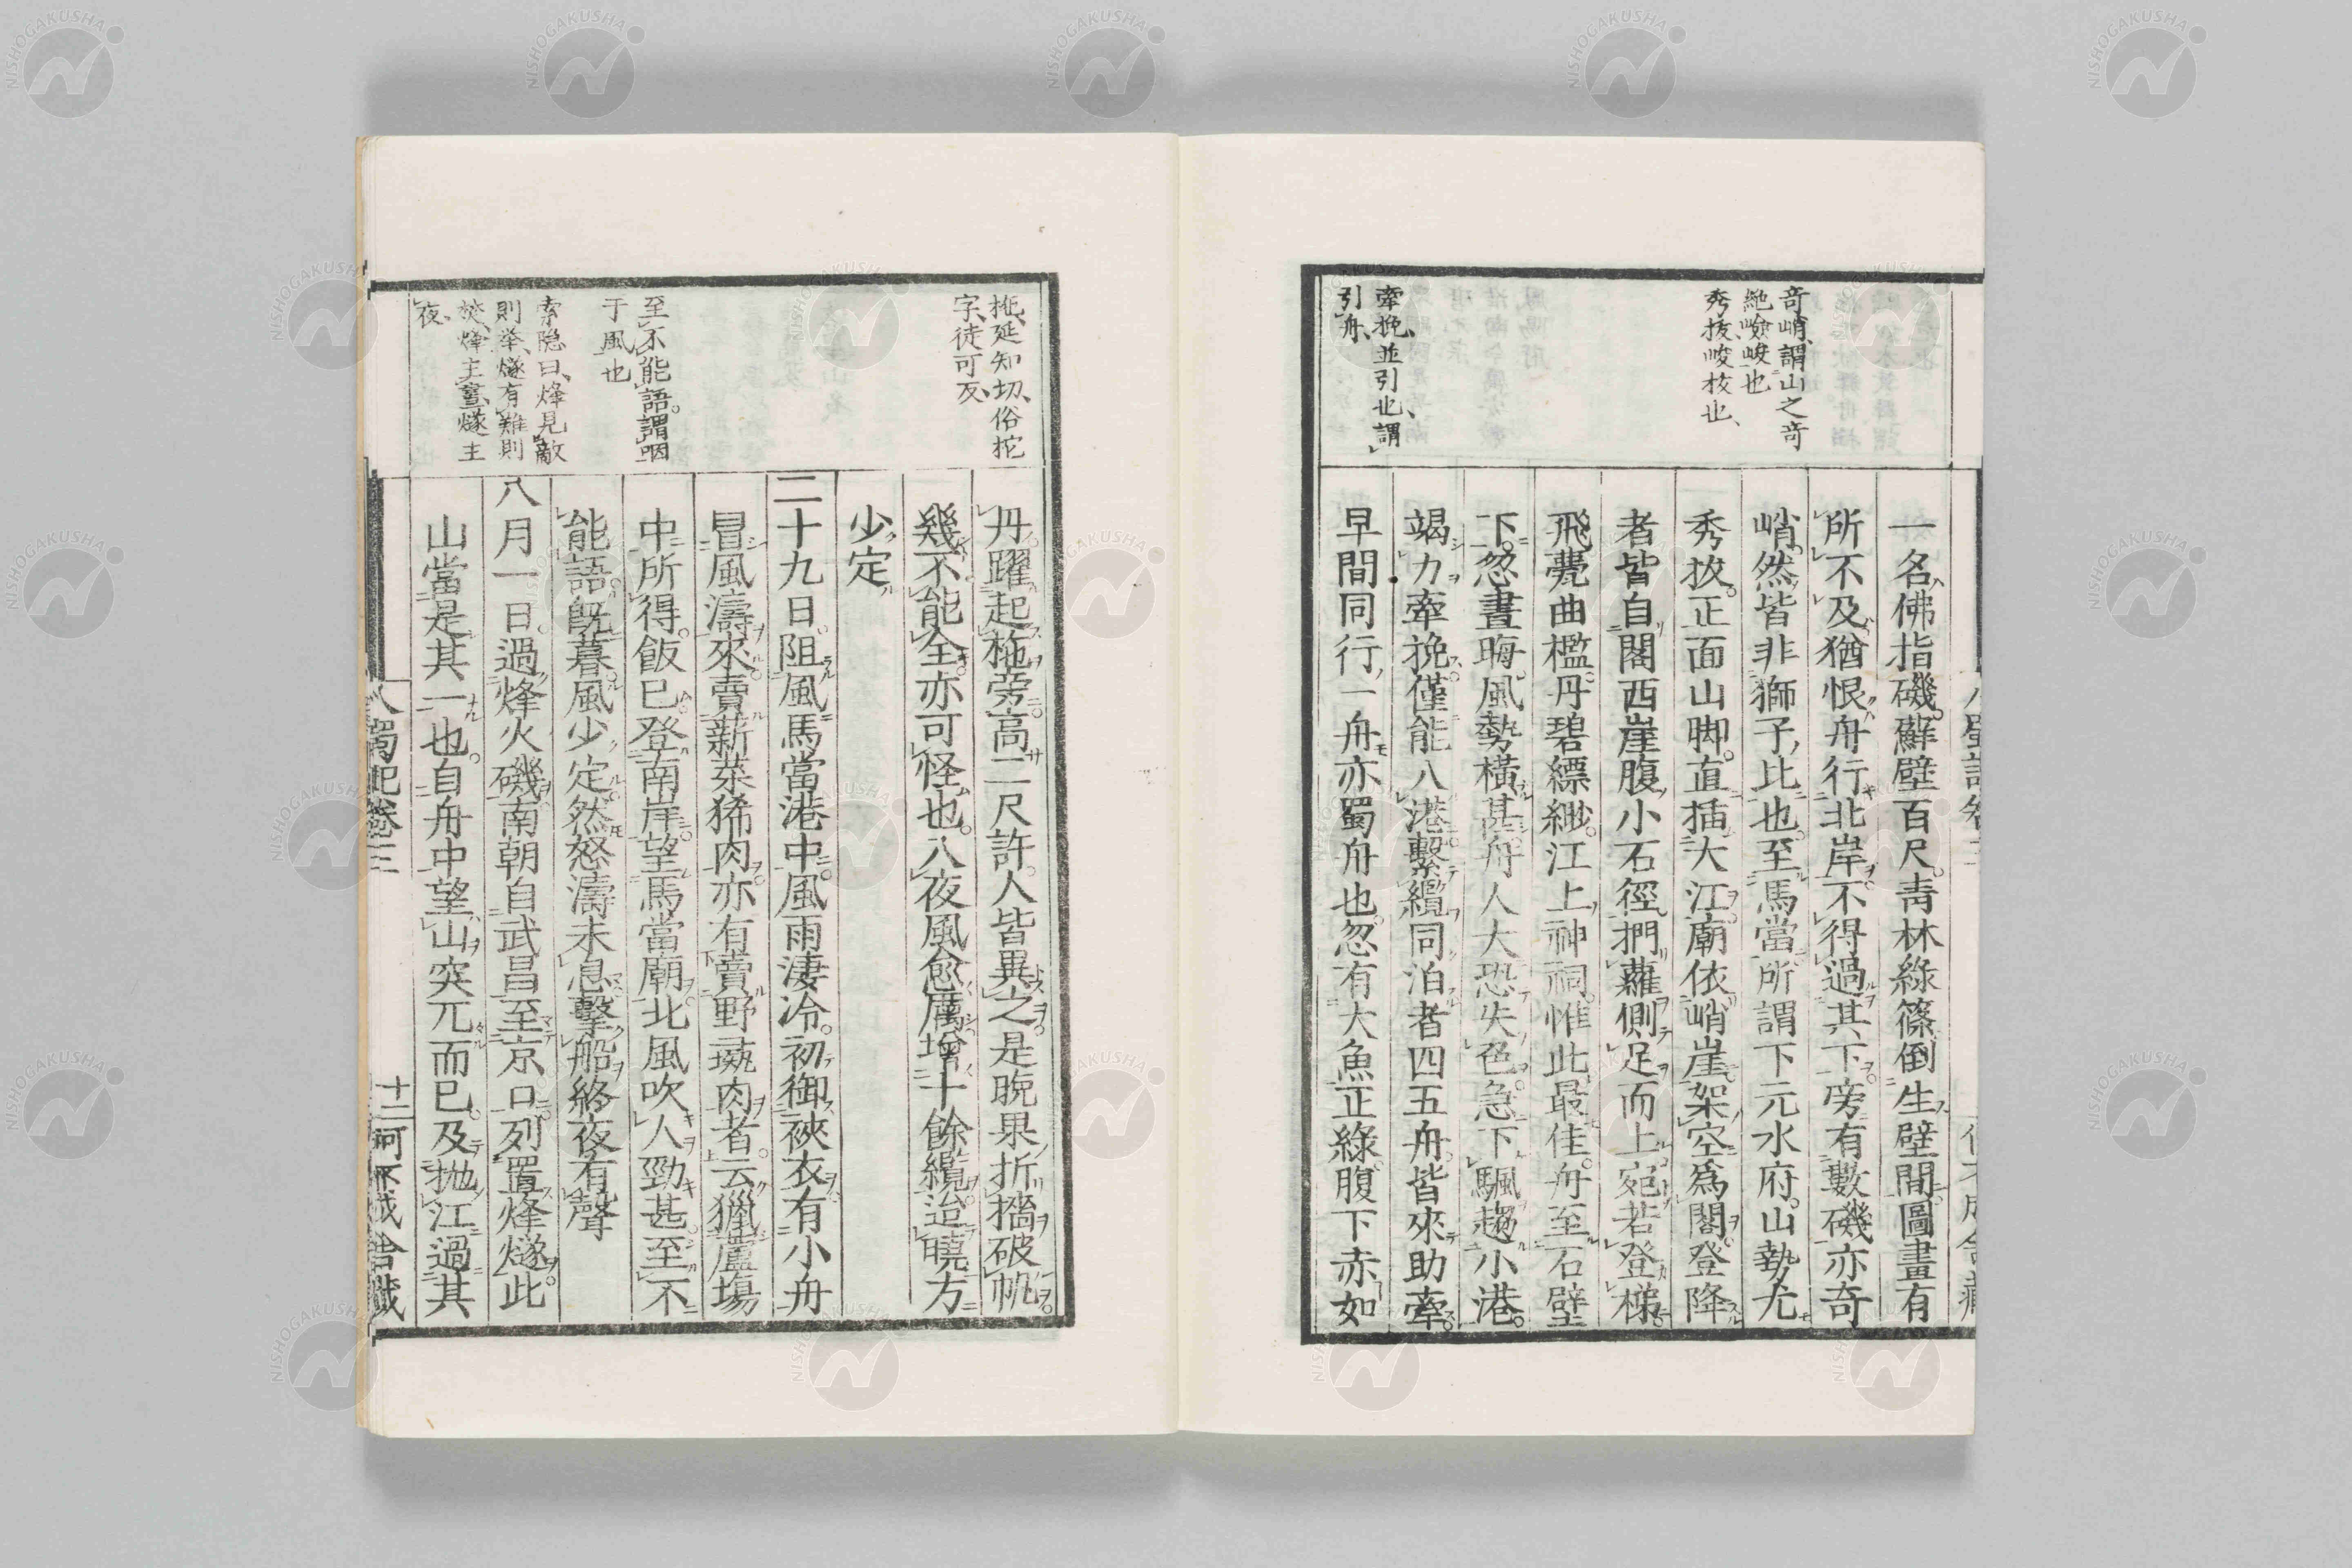 奇峭謂山之奇
絶險峻也
秀拔峻拔也、
牽挽、並引也、謂
引舟、
一名佛指磯。蘇壁百尺。青林綠篠。倒生壁間。圖畫有
所不及。猶恨舟行北岸。不得過其下。旁有數磯。亦奇
峭。然皆非獅子比也。至馬當。所謂下元水府。山勢尤
秀拔。正面山脚。直插大江。廟依峭崖。架空爲閣。登降
者皆自閣西崖腹小石徑。捫蘿側足而上。宛若登梯。
飛甍曲檻。丹碧縹緲。江上神祠。惟此最佳。舟至石壁
下。忽晝晦。風勢橫甚。舟人大恐失色。急下颿。趨小港。
竭力牽挽。僅能入港。繫纜同泊者四五舟。皆來助牽。
早間同行一舟。亦蜀舟也。忽有大魚。正綠。腹下赤如
拖、延知切、俗拕
字、徒可反、
至不能語。謂咽
于風也
索隱曰、烽見敵
則舉、燧有難則
焚、烽主晝、燧主
夜。
丹。躍起柂旁。高二尺許。人皆異之。是晚果折檣破帆。
幾不能全。亦可怪也。入夜風愈厲。增十餘纜。迨曉方
少定。
二十九日。阻風馬當港中。風雨淒冷。初御裌衣。有小舟
冒風濤來。賣薪菜狶肉。亦有賣野彘肉者。云獵蘆場
中所得。飯已。登南岸。望馬當廟。北風吹人勁甚。至不
能語。旣暮。風少定。然怒濤未息。擊船終夜有聲
八月一日。過烽火磯。南朝自武昌至京口。列置烽燧。此
山當是其一也。自舟中望山。突兀而已。及抛江過其
入蜀記卷三
十二
何不成舍藏